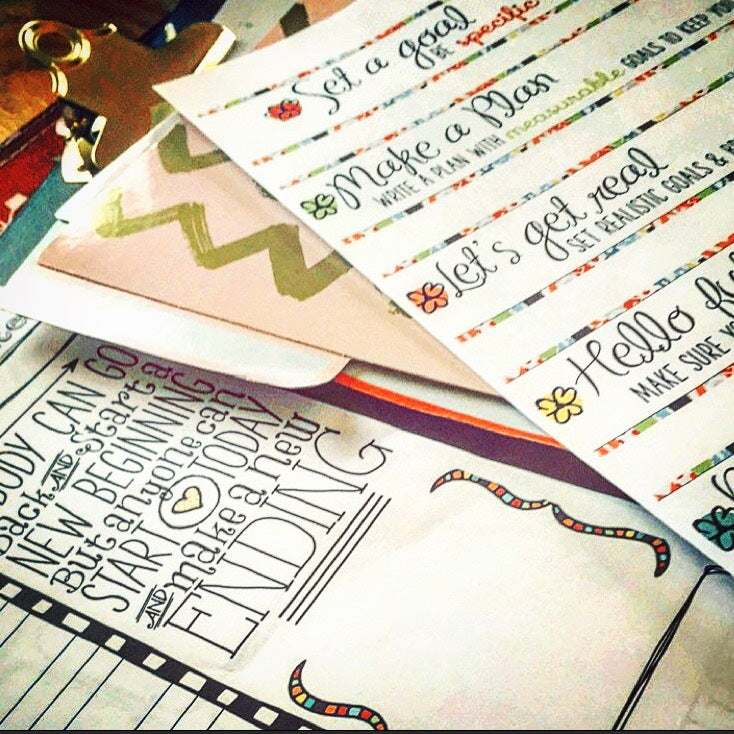 Set a goal
BE specific
Make a Plan
WRITE A PLAN WITH measurable GOALS TO KEEP
Let's get real
SET REALISTIC GOALS &
Hello
MAKE SURE
CAN GO
Back AND Start a
NEW BEGINNING
But anyone can
START TODAY
AND make a new
ENDING